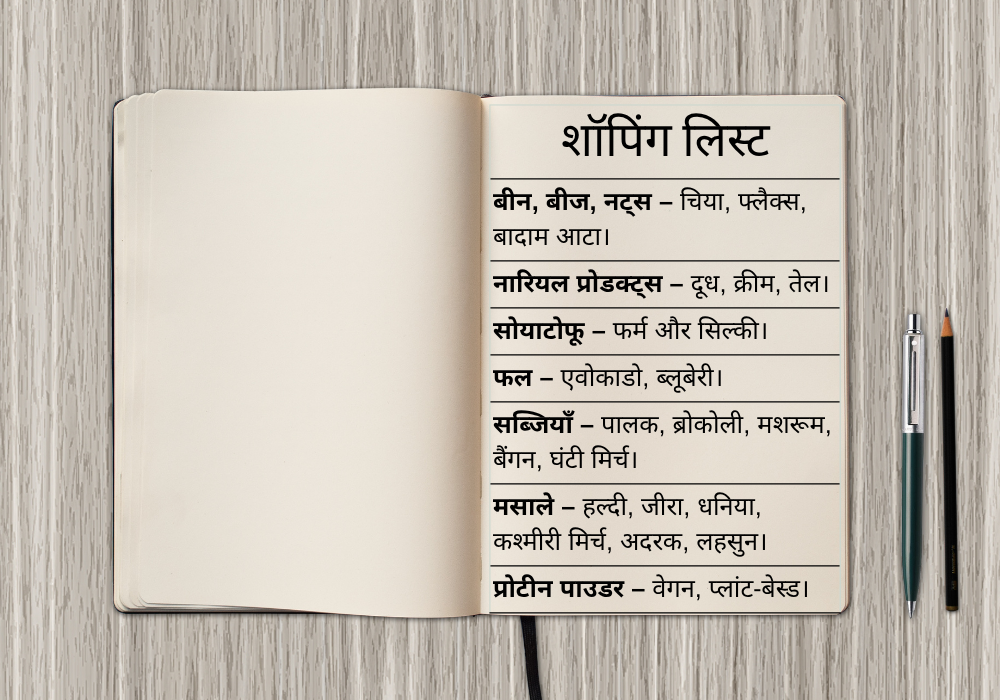 शॉपिंग लिस्ट
बीन, बीज, नट्स – चिया, फ्लैक्स,
बादाम आटा।
नारियल प्रोडक्ट्स – दूध, क्रीम, तेल।
सोयाटोफू – फर्म और सिल्की।
फल – एवोकाडो, ब्लूबेरी।
सब्जियाँ – पालक, ब्रोकोली, मशरूम,
बैंगन, घंटी मिर्च।
मसाले – हल्दी, जीरा, धनिया,
कश्मीरी मिर्च, अदरक, लहसुन।
प्रोटीन पाउडर – वेगन, प्लांट-बेस्ड।